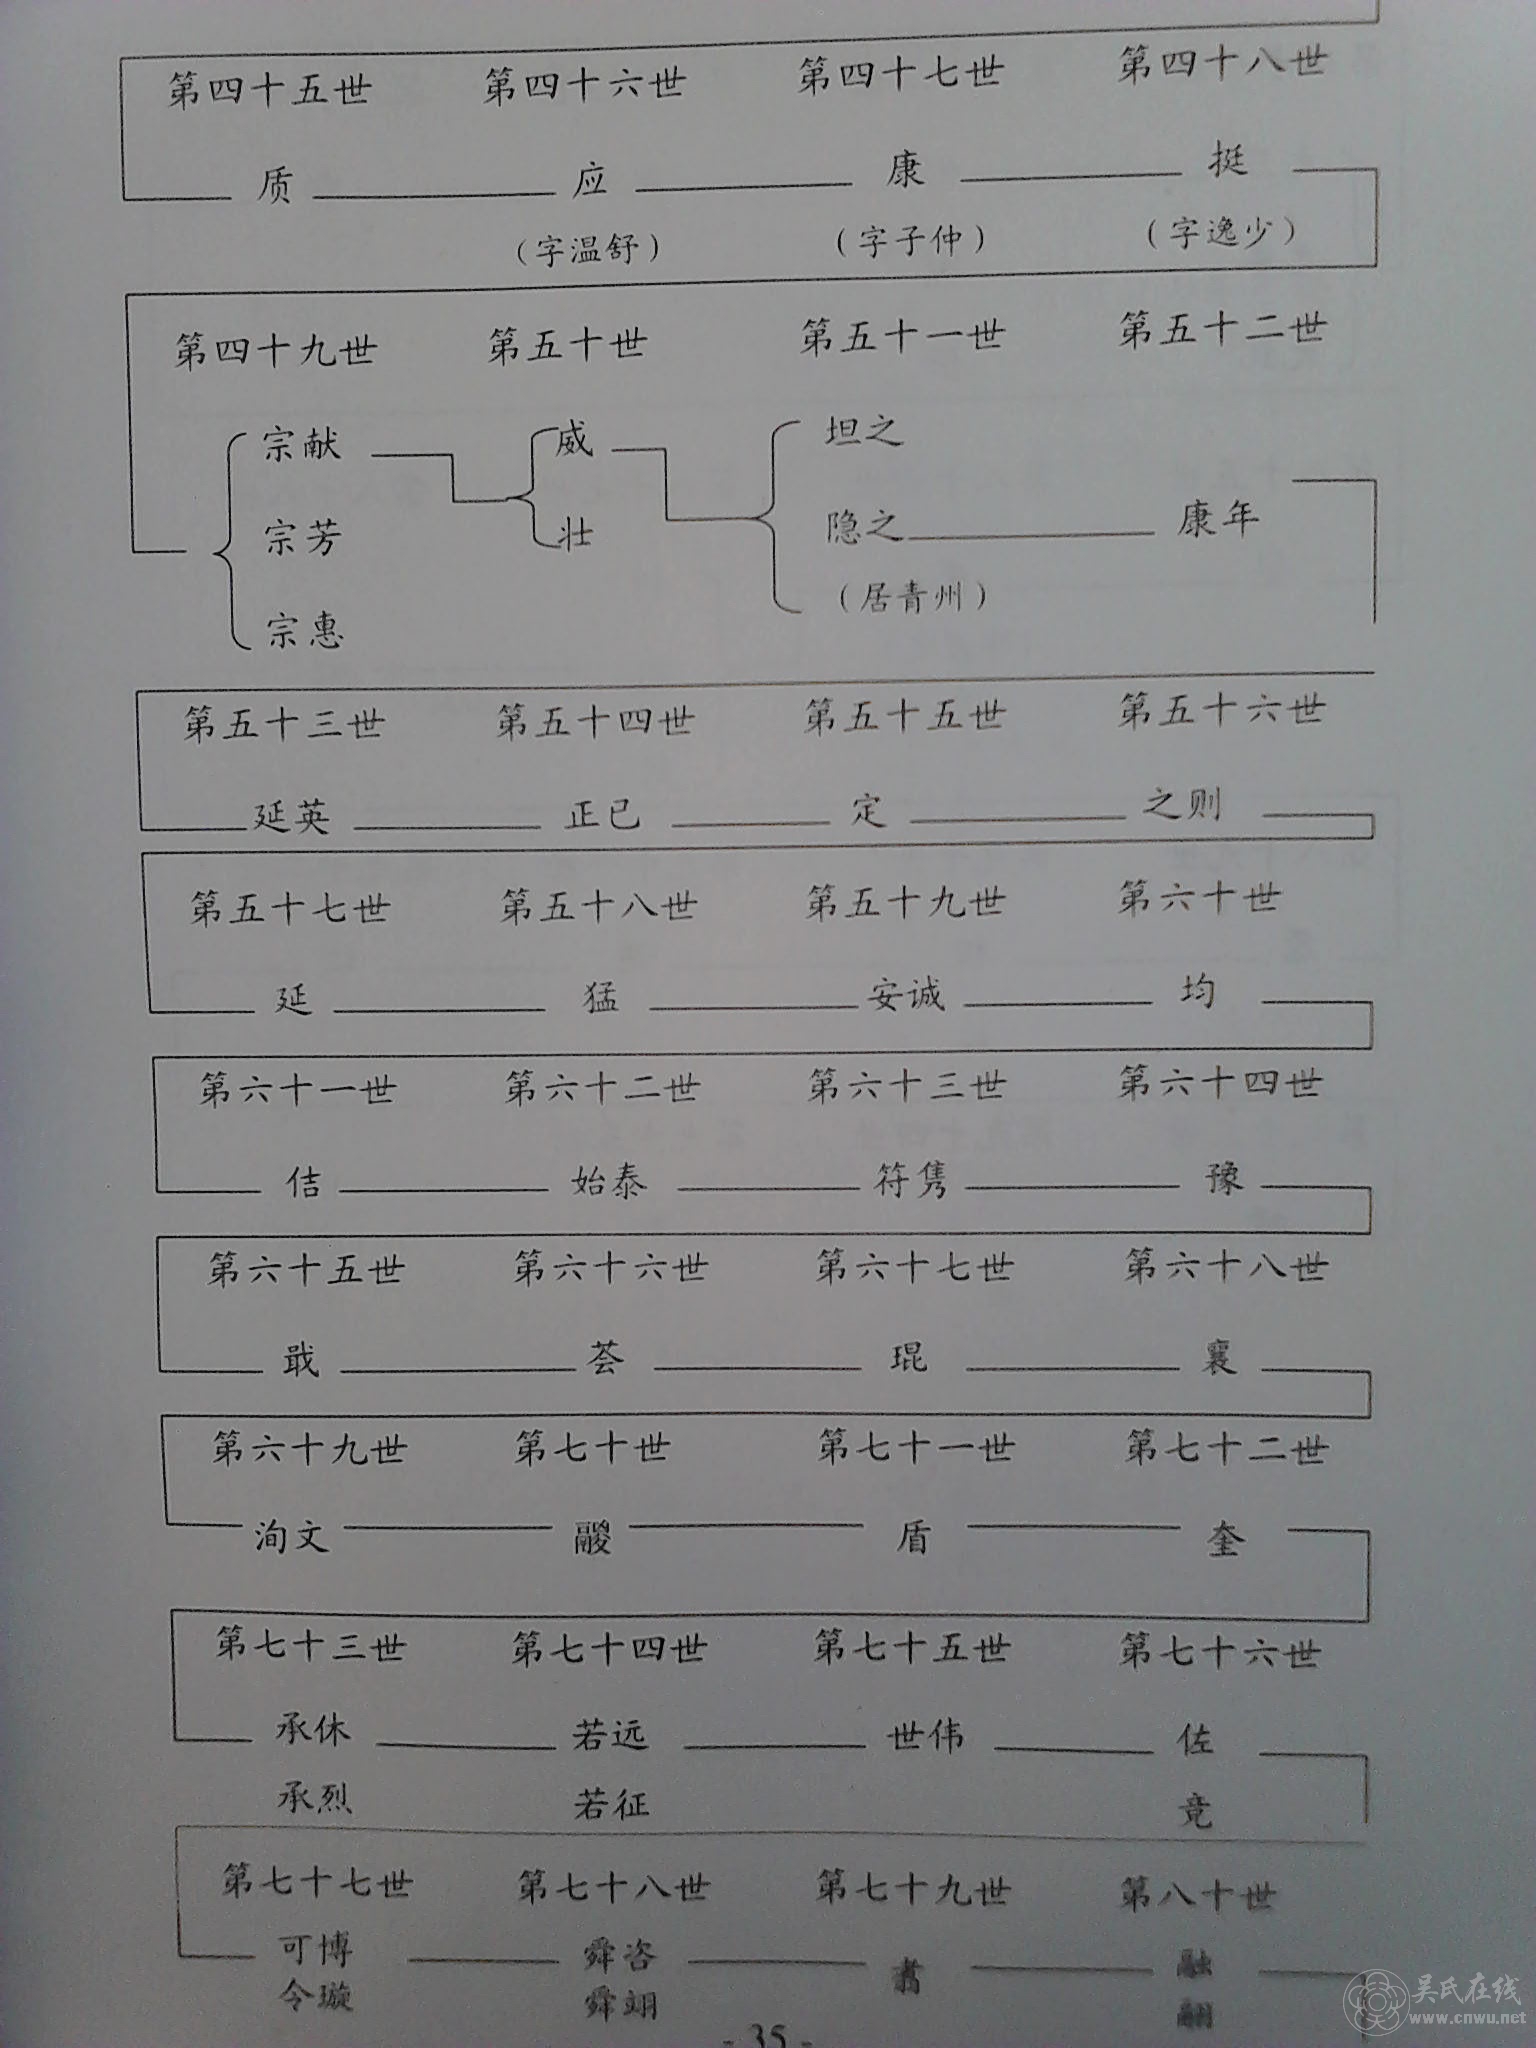 第四十五世 第四十六世 第四十七世 第四十八世
质 应 康 挺
（字温舒） （字子仲） （字逸少）
第四十九世 第五十世 第五十一世 第五十二世
宗献 威 坦之
宗芳 壮 隐之 康年
（居青州）
宗惠
第五十三世 第五十四世 第五十五世 第五十六世
延英 正已 定 之则
第五十七世 第五十八世 第五十九世 第六十世
延 猛 安诚 均
第六十一世 第六十二世 第六十三世 第六十四世
佶 始泰 符隽 豫
第六十五世 第六十六世 第六十七世 第六十八世
戢 荟 琨 襄
第六十九世 第七十世 第七十一世 第七十二世
洵文 盾 奎
第七十三世 第七十四世 第七十五世 第七十六世
承休 若远 世伟 佐
承烈 若征 竟
第七十七世 第七十八世 第七十九世 第八十世
可博 舜咨 翥 融
令璇 舜翊 翮
- 35 -
吴氏在线
www.cnwu.net